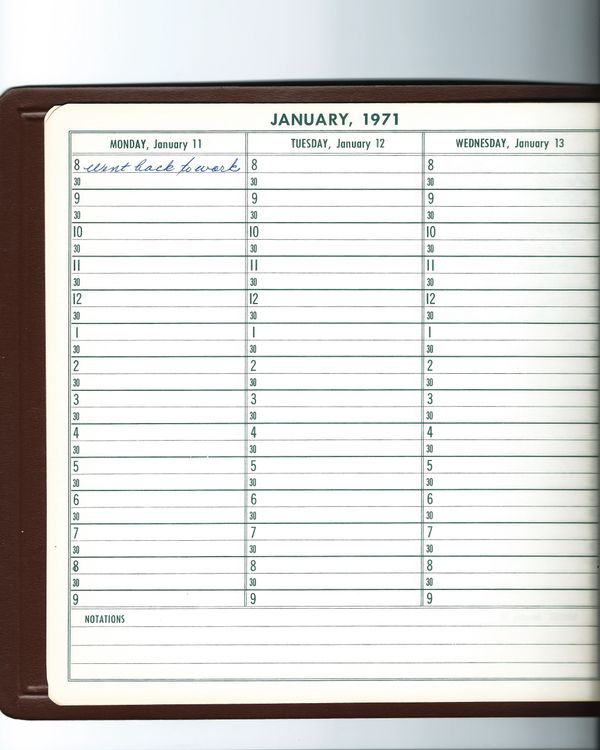 JANUARY, 1971
MONDAY, January 11
TUESDAY, January 12
WEDNESDAY, January 13
8 went back to work 8 8
30 30 30
9 9 9
30 30 30
10 10 10
30 30 30
11 11 11
30 30 30
12 12 12
30 30 30
1 1 1
30 30 30
2 2 2
30 30 30
3 3 3
30 30 30
4 4 4
30 30 30
5 5 5
30 30 30
6 6 6
30 30 30
7 7 7
30 30 30
8 8 8
30 30 30
9 9 9
NOTATIONS